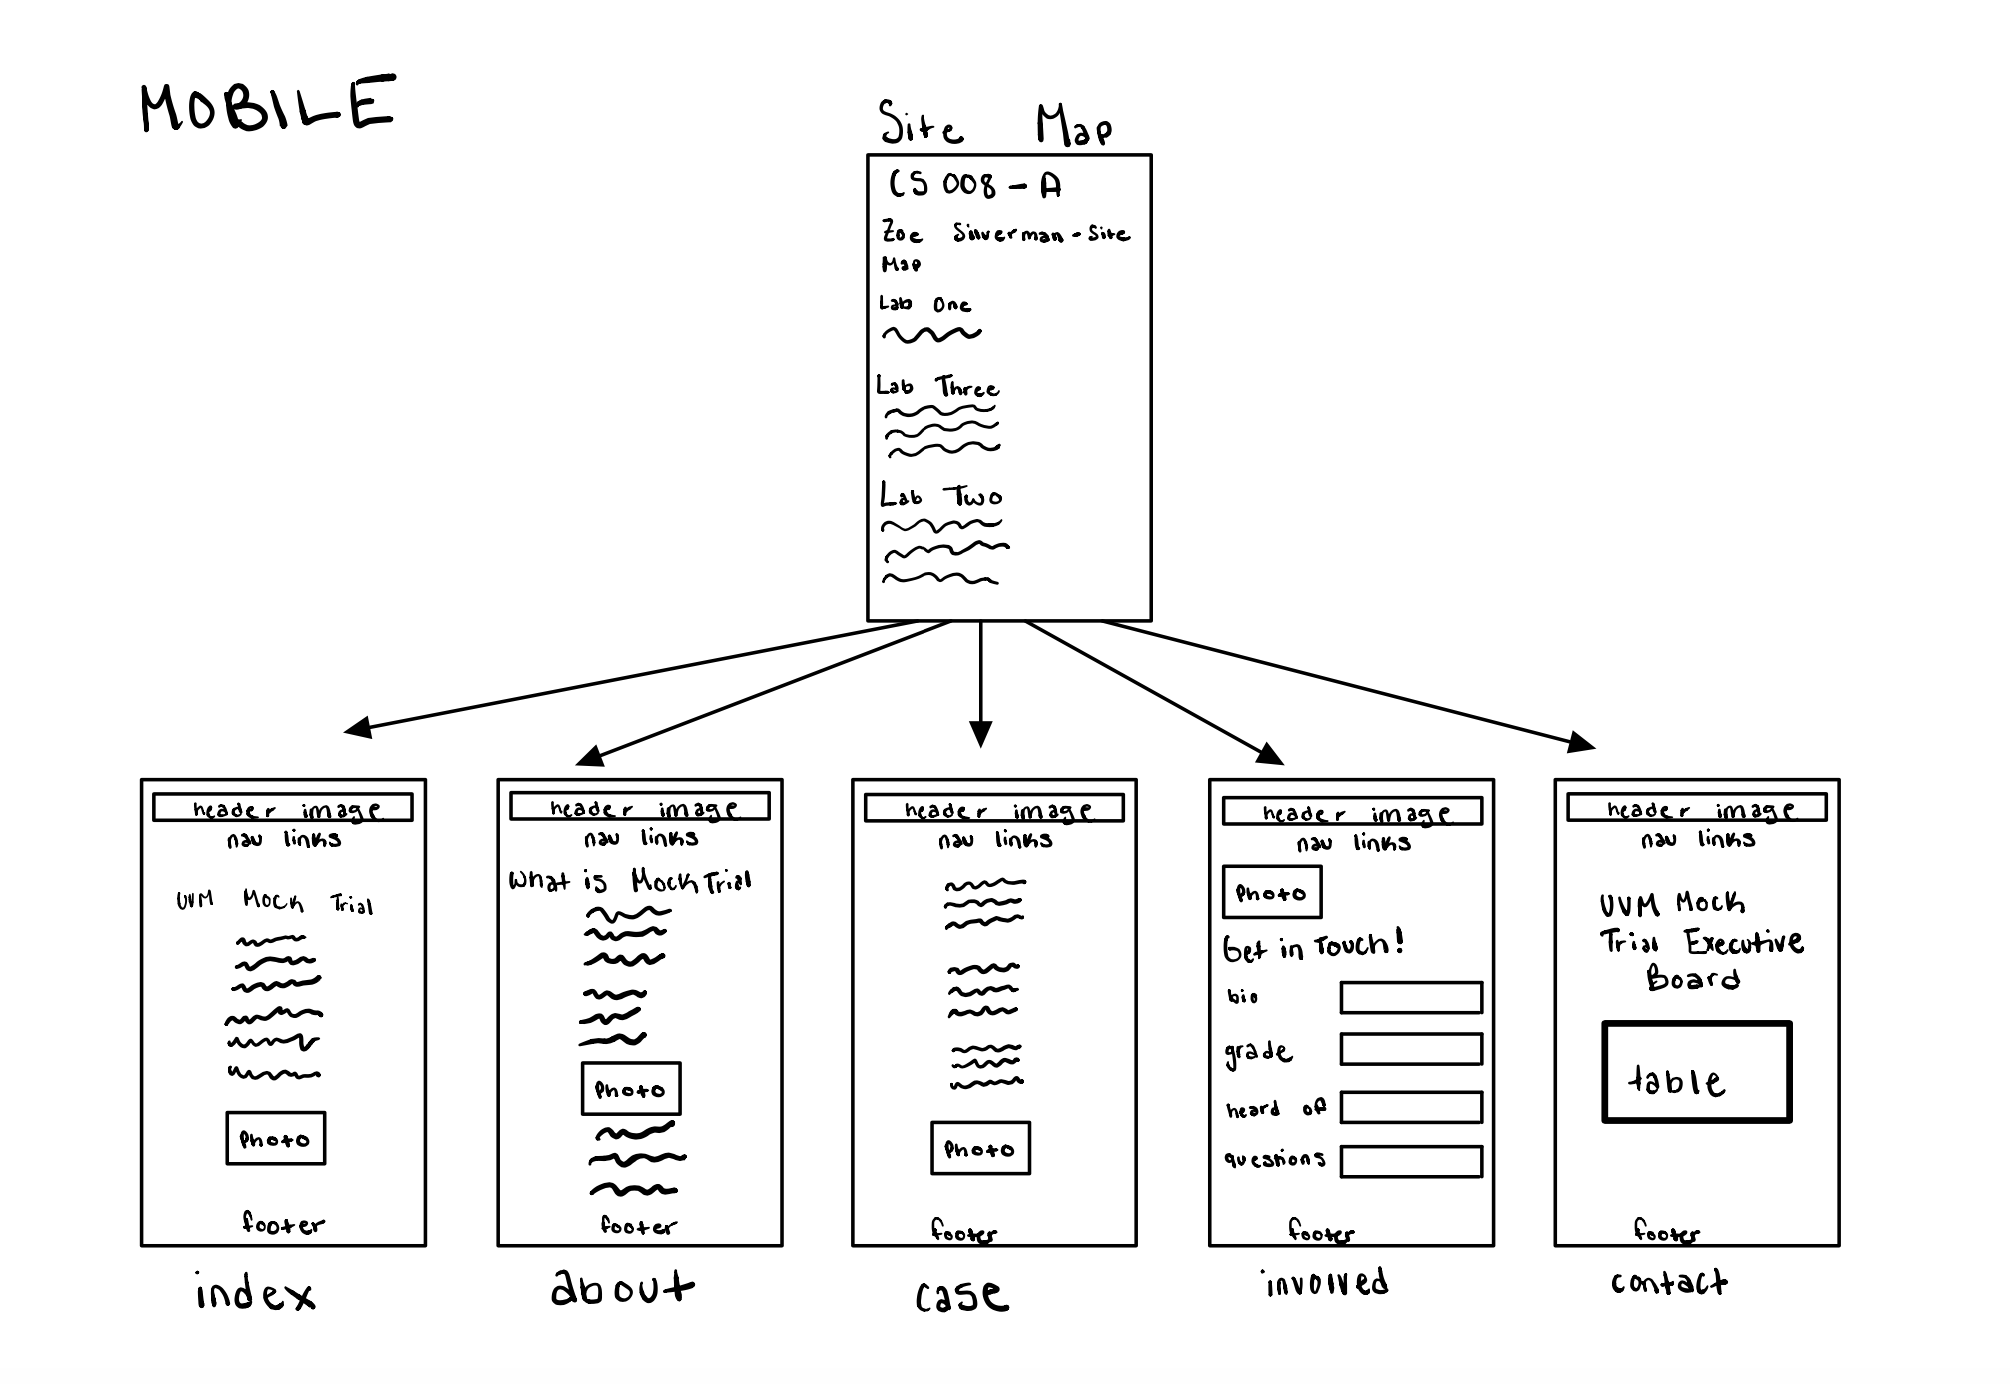 MOBILE
Site Map
CS 008 - A
Zoe Silverman - Site
Map
Lab One
Lab Three
Lab Two
header image
nav links
UVM Mock Trial
Photo
footer
index
header image
nav links
What is Mock Trial
Photo
footer
about
header image
nav links
Photo
footer
case
header image
nav links
Photo
Get in Touch!
bio
grade
heard of
questions
footer
involved
header image
nav links
UVM Mock
Trial Executive
Board
table
footer
contact